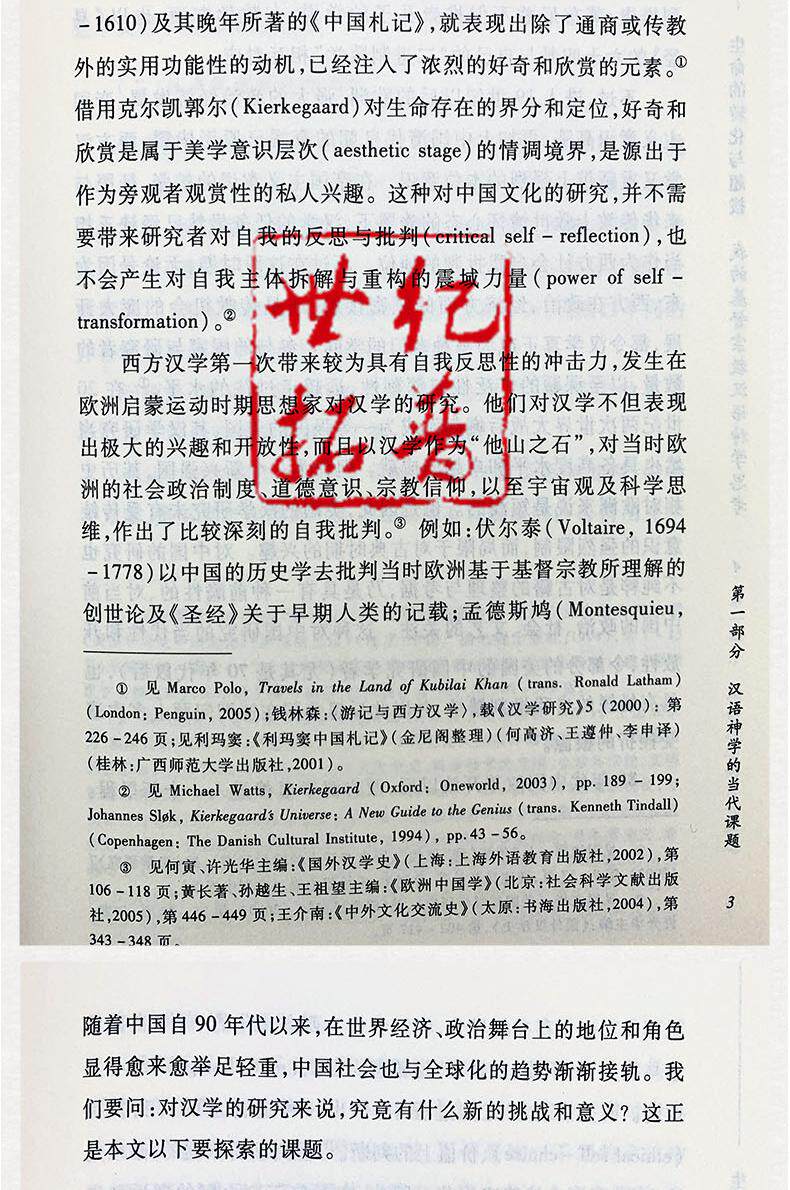 -1610)及其晚年所著的《中国札记》,就表现出除了通商或传教
外的实用功能性的动机,已经注入了浓烈的好奇和欣赏的元素。①
借用克尔凯郭尔(Kierkegaard)对生命存在的界分和定位,好奇和
欣赏是属于美学意识层次(aesthetic stage)的情调境界,是源出于
作为旁观者观赏性的私人兴趣。这种对中国文化的研究,并不需
要带来研究者对自我的反思与批判(critical self-reflection),也
不会产生对自我主体拆解与重构的震域力量(power of self-
transformation)。②
西方汉学第一次带来较为具有自我反思性的冲击力,发生在
欧洲启蒙运动时期思想家对汉学的研究。他们对汉学不但表现
出极大的兴趣和开放性,而且以汉学作为“他山之石”,对当时欧
洲的社会政治制度、道德意识、宗教信仰,以至宇宙观及科学思
维,作出了比较深刻的自我批判。③ 例如:伏尔泰(Voltaire, 1694
-1778)以中国的历史学去批判当时欧洲基于基督宗教所理解的
创世论及《圣经》关于早期人类的记载;孟德斯鸠(Montesquieu,
① 见 Marco Polo, Travels in the Land of Kubilai Khan (trans. Ronald Latham)
(London: Penguin, 2005);钱林森:〈游记与西方汉学〉,载《汉学研究》5 (2000): 第
226-246 页;见利玛窦:《利玛窦中国札记》(金尼阁整理)(何高济、王遵仲、李申译)
(桂林:广西师范大学出版社,2001)。
② 见 Michael Watts, Kierkegaard (Oxford: Oneworld, 2003), pp. 189-199;
Johannes Sløk, Kierkegaard's Universe: A New Guide to the Genius (trans. Kenneth Tindall)
(Copenhagen: The Danish Cultural Institute, 1994), pp. 43-56。
③ 见何寅、许光华主编:《国外汉学史》(上海:上海外语教育出版社,2002),第
106-118 页;黄长著、孙越生、王祖望主编:《欧洲中国学》(北京:社会科学文献出版
社,2005),第 446-449 页;王介南:《中外文化交流史》(太原:书海出版社,2004),第
343-348 页。
第一部分 汉语神学的当代课题
3
世纪
拓普
随着中国自 90 年代以来,在世界经济、政治舞台上的地位和角色
显得愈来愈举足轻重,中国社会也与全球化的趋势渐渐接轨。我
们要问:对汉学的研究来说,究竟有什么新的挑战和意义? 这正
是本文以下要探索的课题。